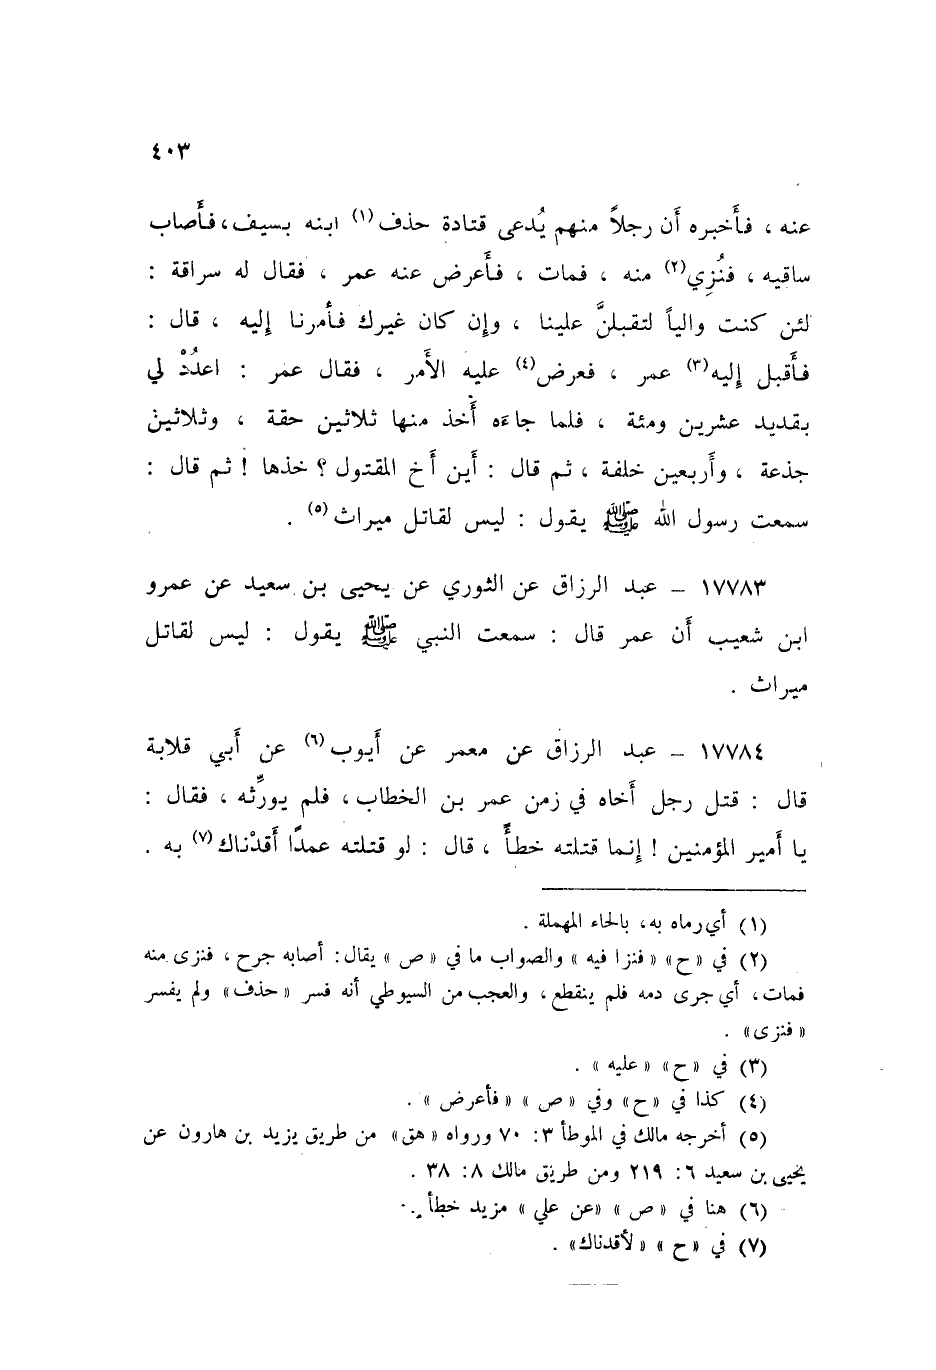 ٤٠٣
عنه ، فأَخبره أَن رجلاً منهم يُدعى قتادة حذف(١) ابنه بسيف، فأَصاب
ساقيه ، فنُزِي(٢) منه ، فمات ، فأَعرض عنه عمر ، فقال له سراقة :
لئن كنت والياً لتقبلنَّ علينا ، وإن كان غيرك فأمرنا إليه ، قال :
فأَقبل إليه(٣) عمر ، فعرض(٤) عليه الأَمر ، فقال عمر : اعدُدْ لي
بقديد عشرين ومئة ، فلما جاءَه أَخذ منها ثلاثين حقة ، وثلاثين
جذعة ، وأَربعين خلفة ، ثم قال : أَين أَخ المقتول ؟ خذها ! ثم قال :
سمعت رسول الله ﷺ يقول : ليس لقاتل ميراث(٥) .
١٧٧٨٣ – عبد الرزاق عن الثوري عن يحيى بن سعيد عن عمرو
ابن شعيب أَن عمر قال : سمعت النبي ﷺ يقول : ليس لقاتل
ميراث .
١٧٧٨٤ – عبد الرزاق عن معمر عن أَيوب(٦) عن أَبي قلابة
قال : قتل رجل أَخاه في زمن عمر بن الخطاب ، فلم يورِّثه ، فقال :
يا أَمير المؤمنين ! إنما قتلته خطأً ، قال : لو قتلته عمدًا أَقدْناك(٧) به .
(١) أي رماه به، بالحاء المهملة .
(٢) في «ح» «فنزا فيه» والصواب ما في «ص» يقال: أصابه جرح ، فنزى منه
فمات، أي جرى دمه فلم ينقطع، والعجب من السيوطي أنه فسر «حذف» ولم يفسر
«فنزى» .
(٣) في «ح» «عليه» .
(٤) كذا في «ح» وفي «ص» «فأعرض» .
(٥) أخرجه مالك في الموطأ ٣: ٧٠ ورواه «هق» من طريق يزيد بن هارون عن
يحيى بن سعيد ٦: ٢١٩ ومن طريق مالك ٨: ٣٨ .
(٦) هنا في «ص» «عن علي» مزيد خطأ .
(٧) في «ح» «لأقدناك» .